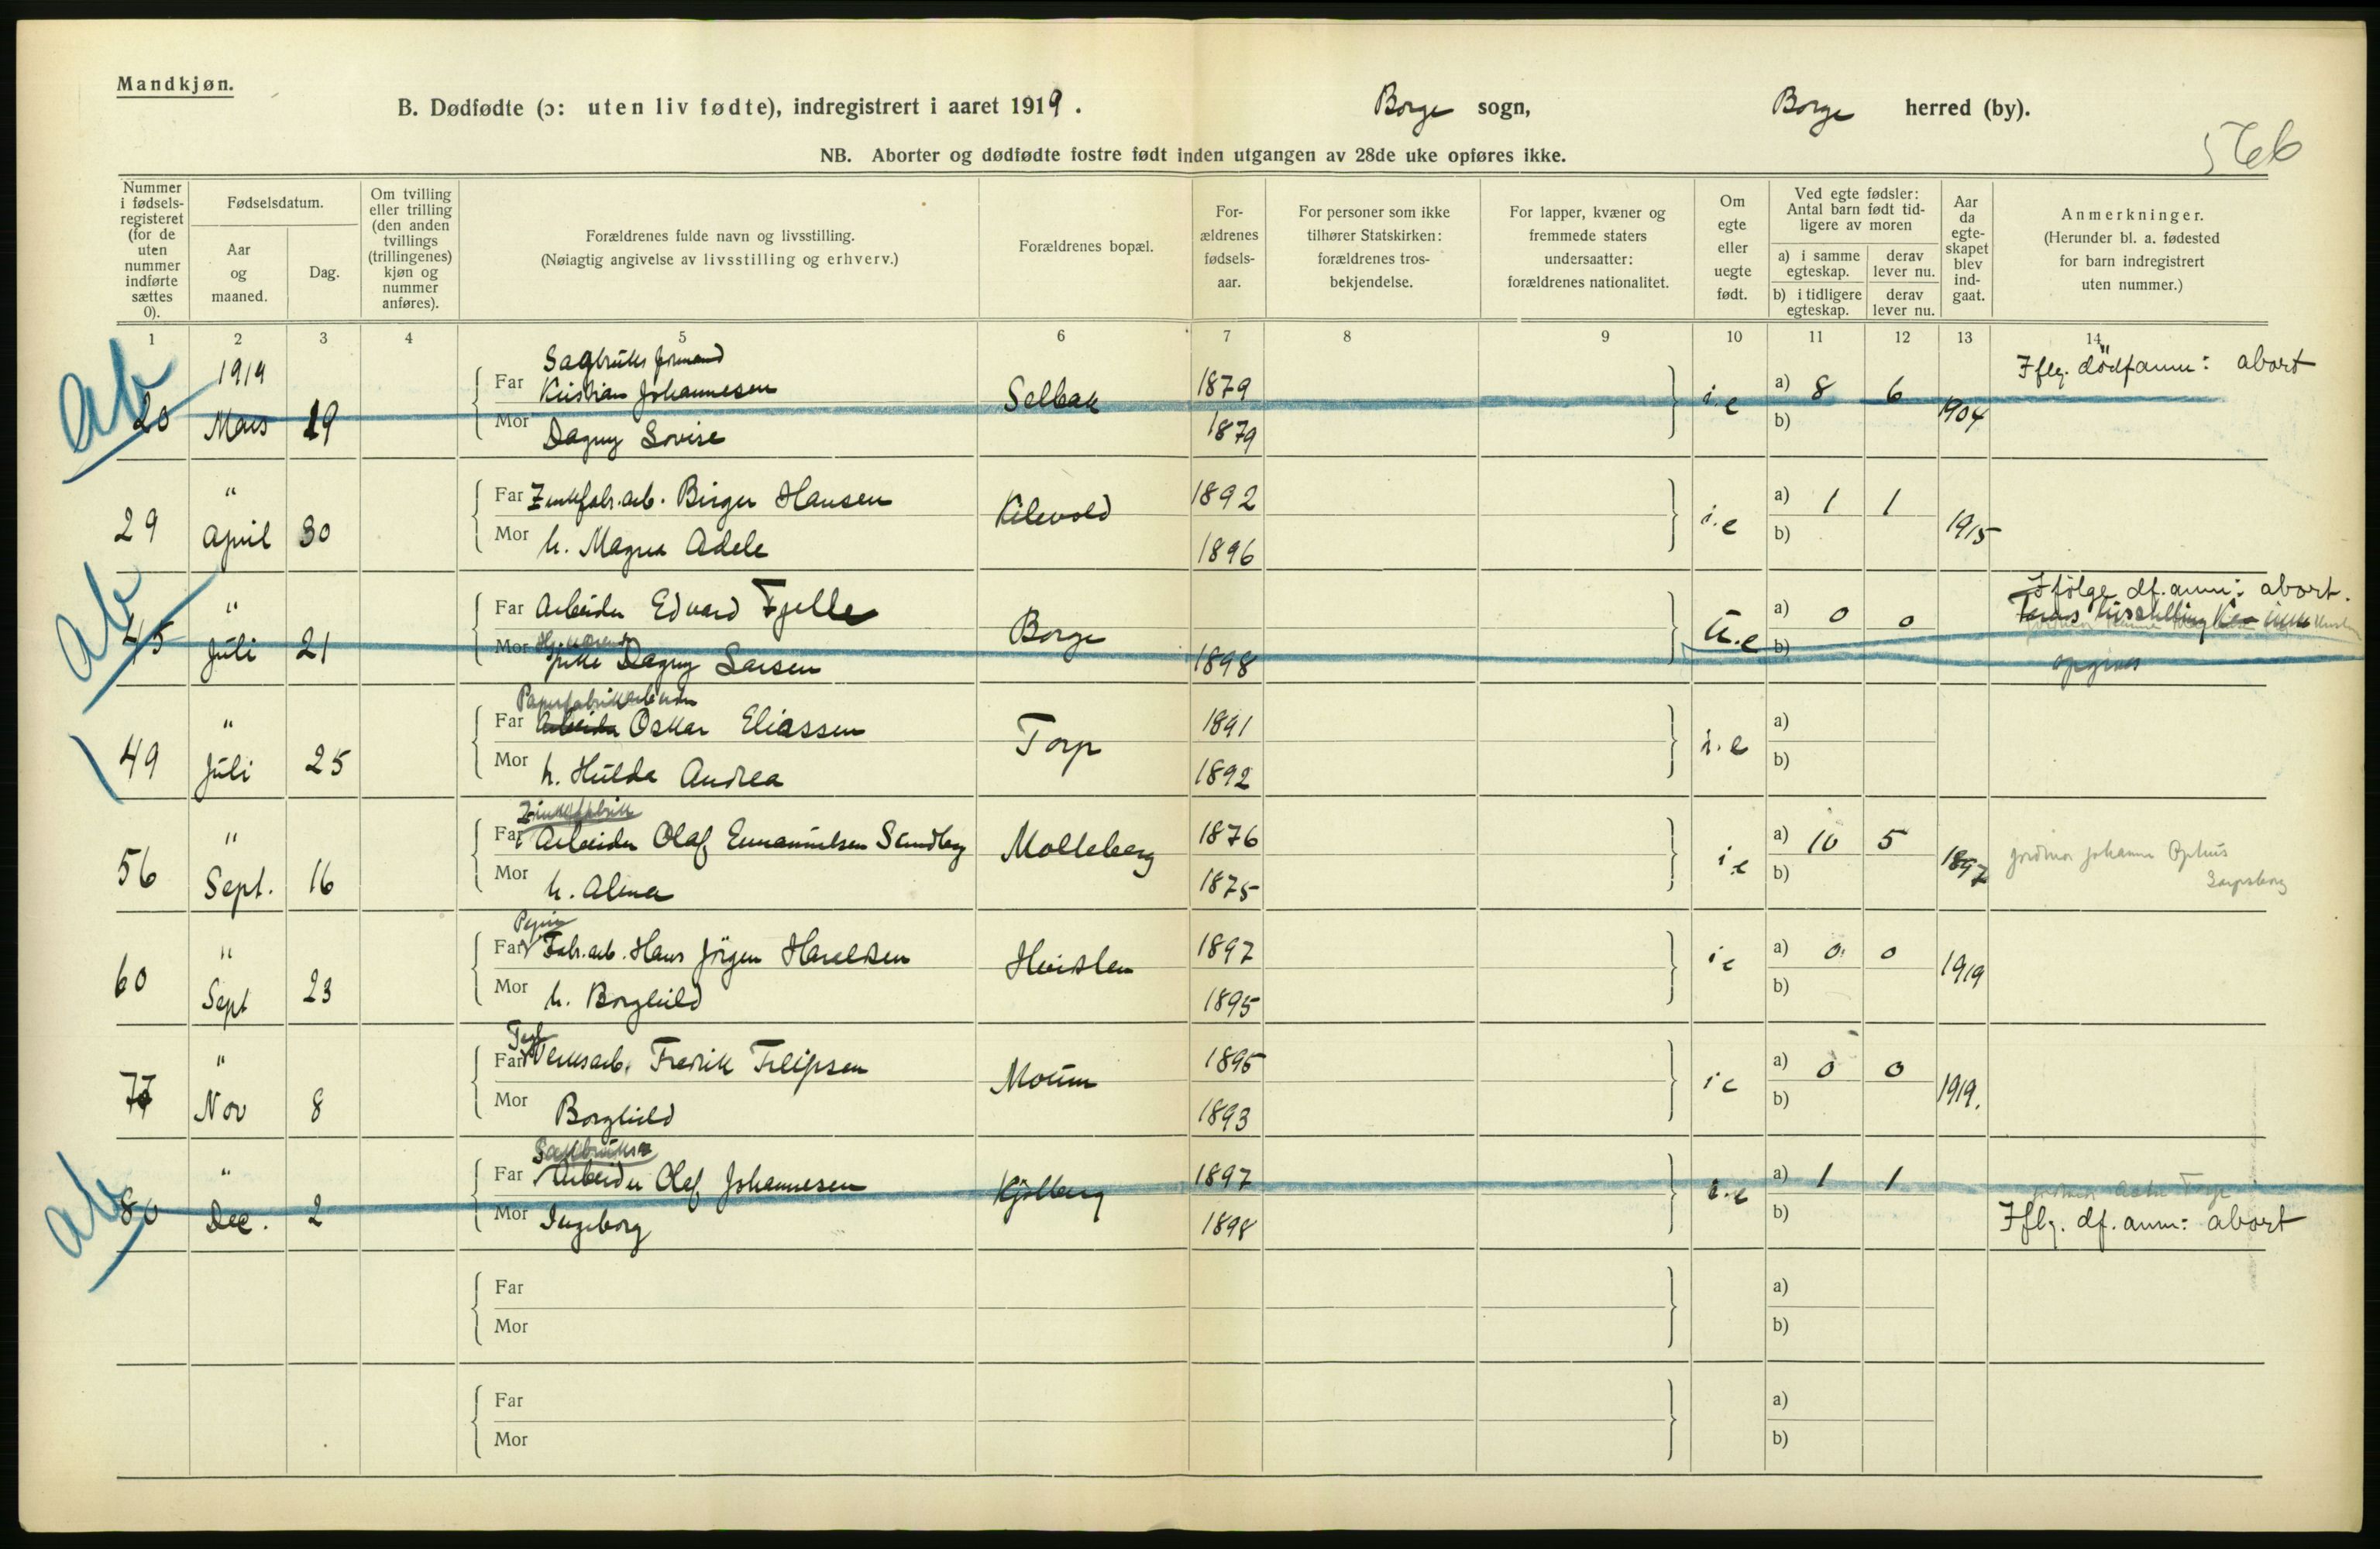 Mandkjøn.
B. Dødfødte (ɔ: uten liv fødte), indregistrert i aaret 1919. Borge sogn, Borge herred (by).
NB. Aborter og dødfødte fostre født inden utgangen av 28de uke opføres ikke.
Nummer i fødsels-registeret (for de uten nummer indførte sættes 0).
Fødselsdatum.
Aar og maaned.
Dag.
Om tvilling eller trilling (den anden tvillings (trillingenes) kjøn og nummer anføres).
Forældrenes fulde navn og livsstilling.
(Nøiagtig angivelse av livsstilling og erhverv.)
Forældrenes bopæl.
For-ældrenes fødsels-aar.
For personer som ikke tilhører Statskirken: forældrenes tros-bekjendelse.
For lapper, kvæner og fremmede staters undersaatter: forældrenes nationalitet.
Om egte eller uegte født.
Ved egte fødsler: Antal barn født tid-ligere av moren
a) i samme egteskap. derav lever nu.
b) i tidligere egteskap. derav lever nu.
Aar da egte-skapet blev ind-gaat.
Anmerkninger.
(Herunder bl. a. fødested for barn indregistrert uten nummer.)
1 2 3 4 5 6 7 8 9 10 11 12 13 14
ab
1919
Sagbruks formand
Far Kristian Johannesen Selbak 1879 i.e a) 8 6 1904 Iflg. dödfanm: abort
20 Mars 19
Mor Dagny Lovise 1879 b)
"
Far Zinkfabr. arb. Birger Hansen Kilevold 1892 i.e a) 1 1 1915
29 April 30
Mor h. Magna Adele 1896 b)
ab
"
Far Arbeider Edvard Fjelle Borge u.e a) 0 0 Ifölge df. anm: abort.
45 Juli 21
Mor Dagny Larsen 1898 b) opgives
"
Papirfabrikarbeider
Far Arbeider Oskar Eliassen Torp 1891 i.e a)
49 Juli 25
Mor h. Hulda Andrea 1892 b)
"
Zinkfabrik
Far Arbeider Olaf Emanuelsen Sundberg Molleberg 1876 i.e a) 10 5 1897 jordmor Johanne
56 Sept. 16 Sarpsborg
Mor h. Alma 1875 b)
"
Papir
Far Fabr. arb. Hans Jörgen Haraldsen Hvidsten 1897 i e a) 0 0 1919
60 Sept 23
Mor h. Borghild 1895 b)
"
Far Verksarb. Fredrik Filipsen Moum 1895 i e a) 0 0 1919.
77 Nov 8
Mor Borghild 1893 b)
ab
"
Sagbruks
Far Arbeider Olaf Johannesen Kjölberg 1897 i.e a) 1 1
80 Dec. 2
Mor Ingeborg 1898 b) Iflg. df. anm: abort
Far a)
Mor b)
Far a)
Mor b)